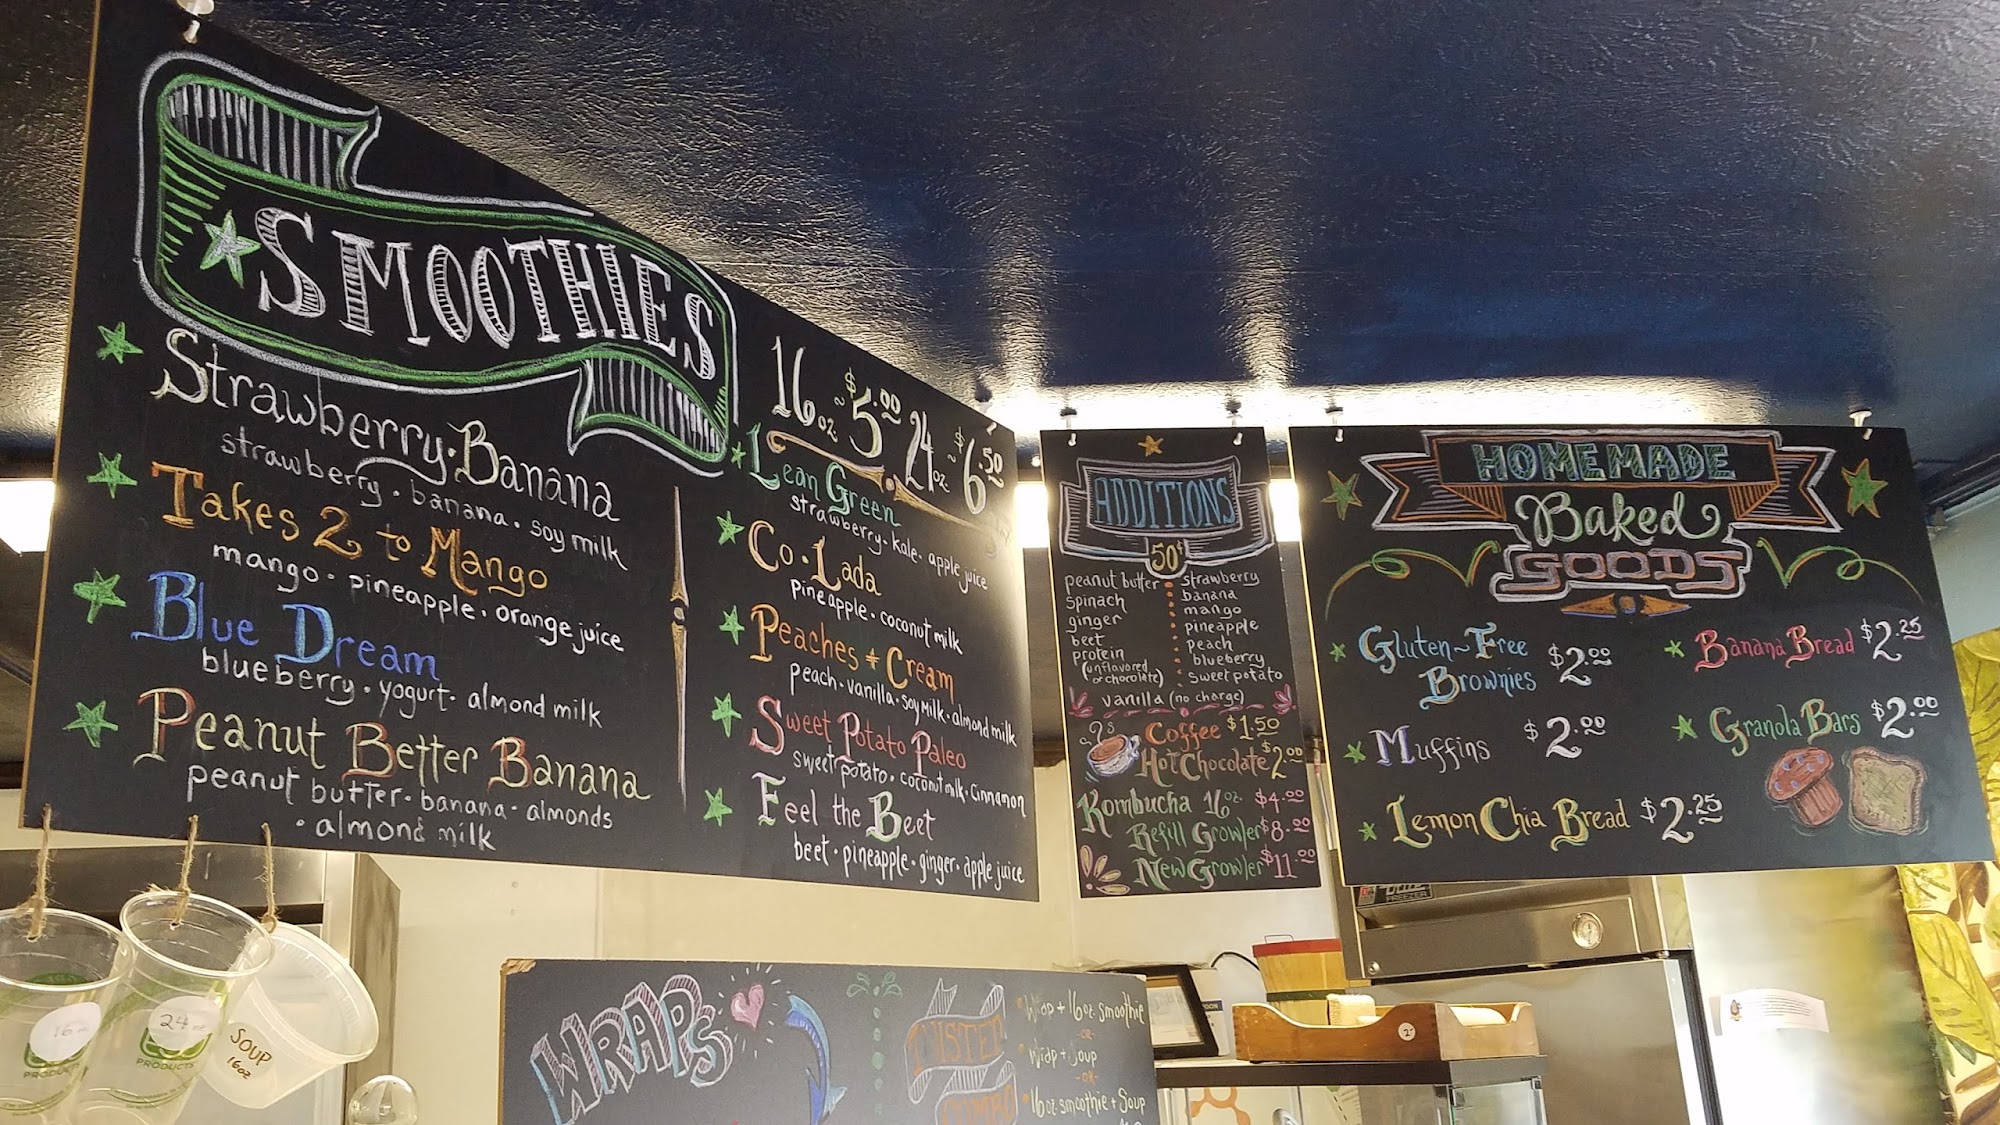 SMOOTHIES
16 oz ~ $5.00 24 oz ~ $6.50
Strawberry·Banana
strawberry · banana · soy milk
Takes 2 to Mango
mango · pineapple · orange juice
Blue Dream
blueberry · yogurt · almond milk
Peanut Better Banana
peanut butter · banana · almonds
· almond milk
Lean Green
strawberry · kale · apple juice
Co·Lada
pineapple · coconut milk
Peaches + Cream
peach · vanilla · soy milk · almond milk
Sweet Potato Paleo
sweet potato · coconut milk · cinnamon
Feel the Beet
beet · pineapple · ginger · apple juice
ADDITIONS
50¢
peanut butter
spinach
ginger
beet
protein
(unflavored
or chocolate)
strawberry
banana
mango
pineapple
peach
blueberry
sweet potato
vanilla (no charge)
Coffee $1.50
Hot Chocolate $2.00
Kombucha 16oz. $4.00
Refill Growler $8.00
New Growler $11.00
HOMEMADE
Baked
GOODS
Gluten~Free
Brownies $2.00
Muffins $2.00
Lemon Chia Bread $2.25
Banana Bread $2.25
Granola Bars $2.00
WRAPS
TWISTED
COMBO
Wrap + 16oz. smoothie
-OR-
Wrap + Soup
-OR-
16oz. smoothie + Soup
16oz
24oz
PRODUCTS
PRODUCTS
SOUP
16oz
FREEZER